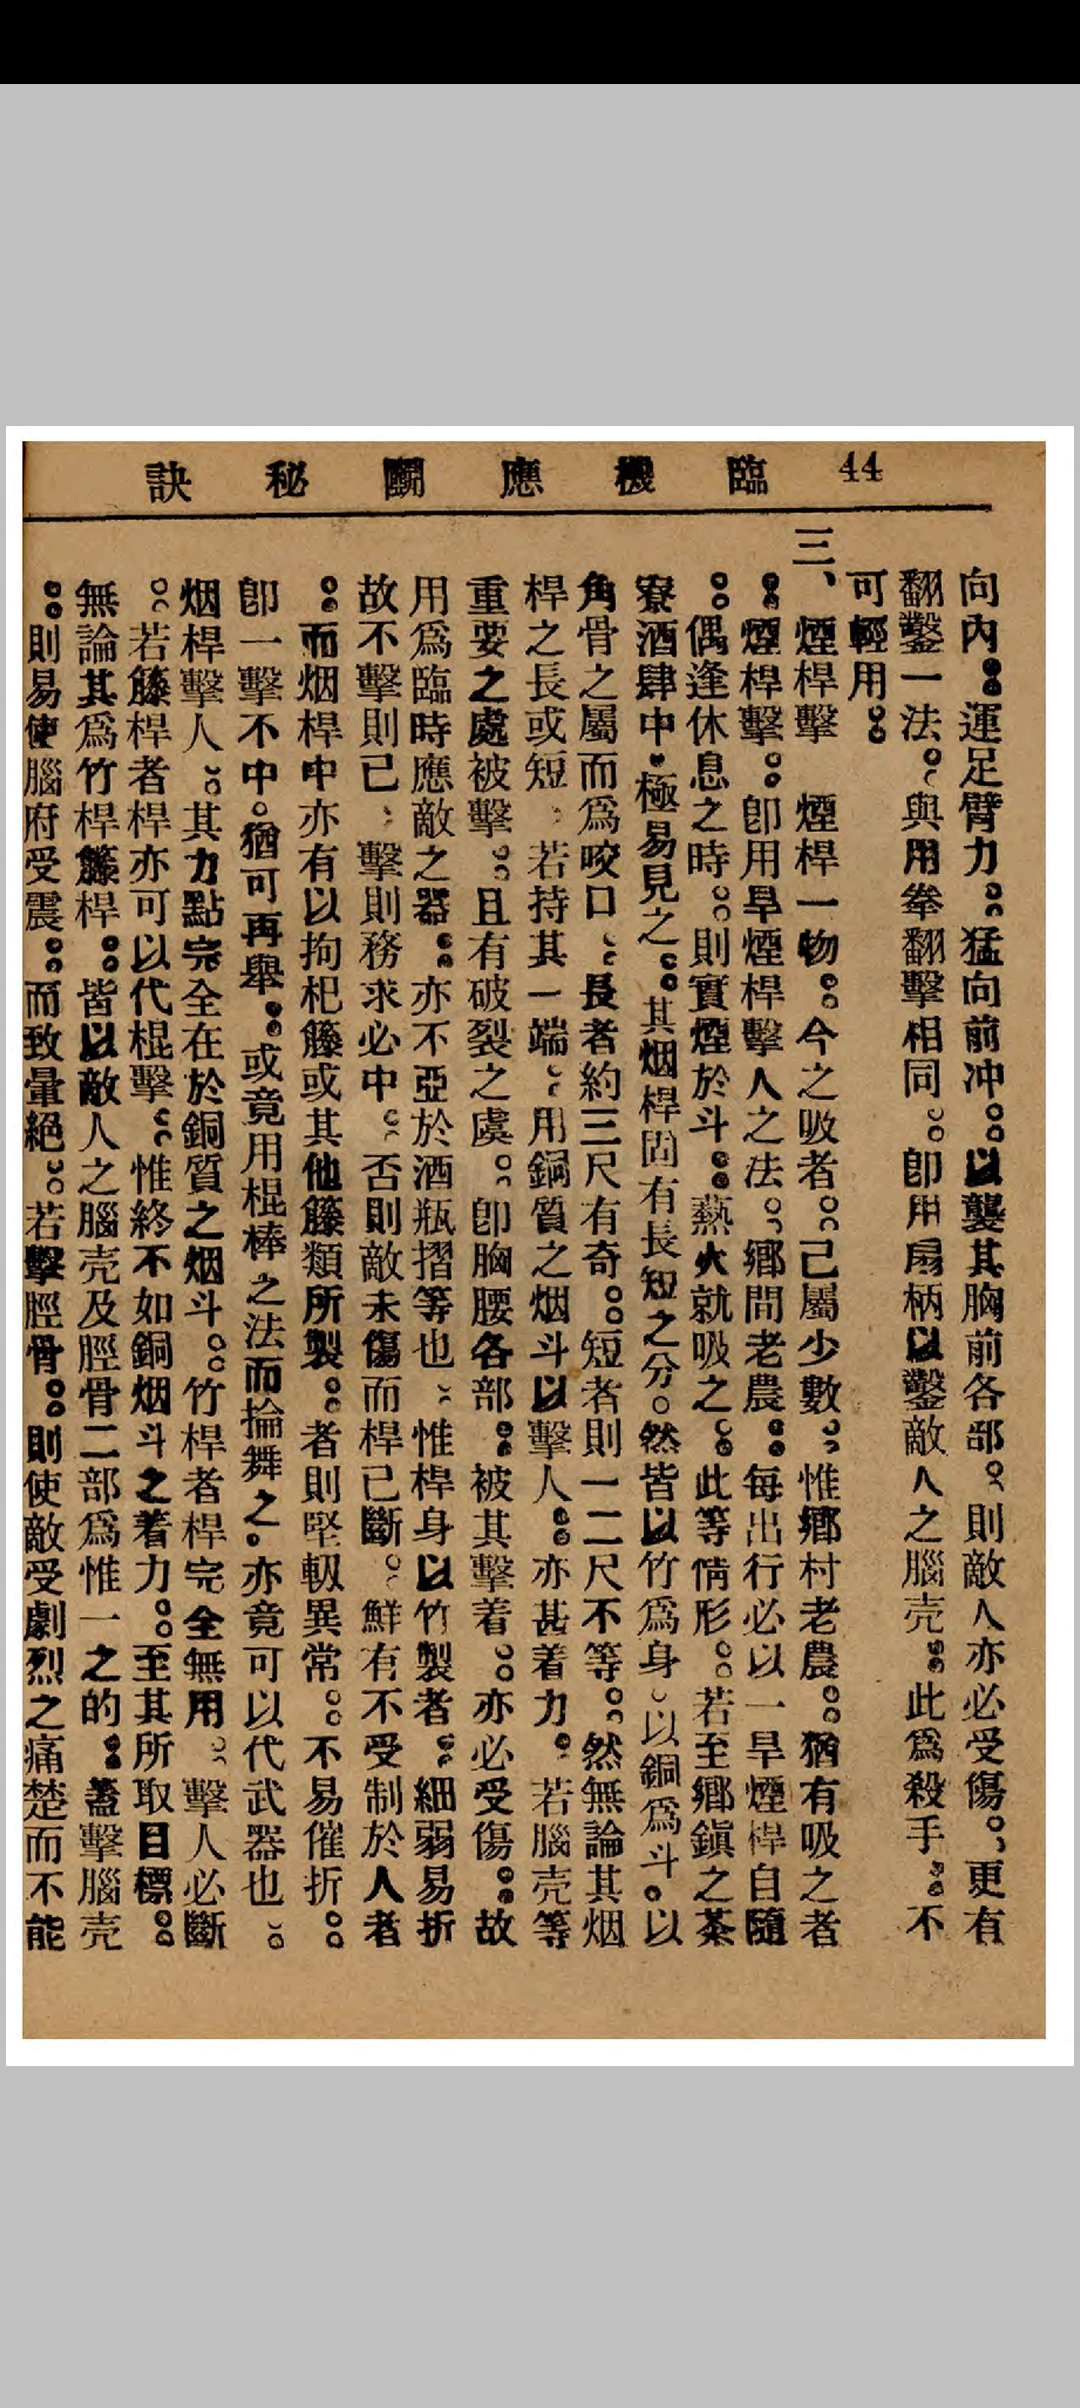 44 臨機應鬭秘訣
向內。運足臂力。猛向前冲。以襲其胸前各部。則敵人亦必受傷。更有
翻鑿一法。與用拳翻擊相同。卽用扇柄以鑿敵人之腦壳。此爲殺手。不
可輕用。
三、煙桿擊　煙桿一物。今之吸者。己屬少數。惟鄕村老農。猶有吸之者
。煙桿擊。卽用旱煙桿擊人之法。鄕間老農。每出行必以一旱煙桿自隨
。偶逢休息之時。則實煙於斗。爇火就吸之。此等情形。若至鄕鎭之茶
寮酒肆中。極易見之。其烟桿固有長短之分。然皆以竹爲身。以銅爲斗。以
角骨之屬而爲咬口。長者約三尺有奇。短者則一二尺不等。然無論其烟
桿之長或短。若持其一端。用銅質之烟斗以擊人。亦甚着力。若腦壳等
重要之處被擊。且有破裂之虞。卽胸腰各部。被其擊着。亦必受傷。故
用爲臨時應敵之器。亦不亞於酒瓶摺等也。惟桿身以竹製者。細弱易折
故不擊則已。擊則務求必中。否則敵未傷而桿已斷。鮮有不受制於人者
。而烟桿中亦有以拘杞籐或其他籐類所製。者則堅靱異常。不易催折。
卽一擊不中。猶可再舉。或竟用棍棒之法而掄舞之。亦竟可以代武器也。
烟桿擊人。其力點完全在於銅質之烟斗。竹桿者桿完全無用。擊人必斷
。若籐桿者桿亦可以代棍擊。惟終不如銅烟斗之着力。至其所取目標。
無論其爲竹桿籐桿。皆以敵人之腦壳及脛骨二部爲惟一之的。蓋擊腦壳
。則易使腦府受震。而致暈絕。若擊脛骨。則使敵受劇烈之痛楚而不能